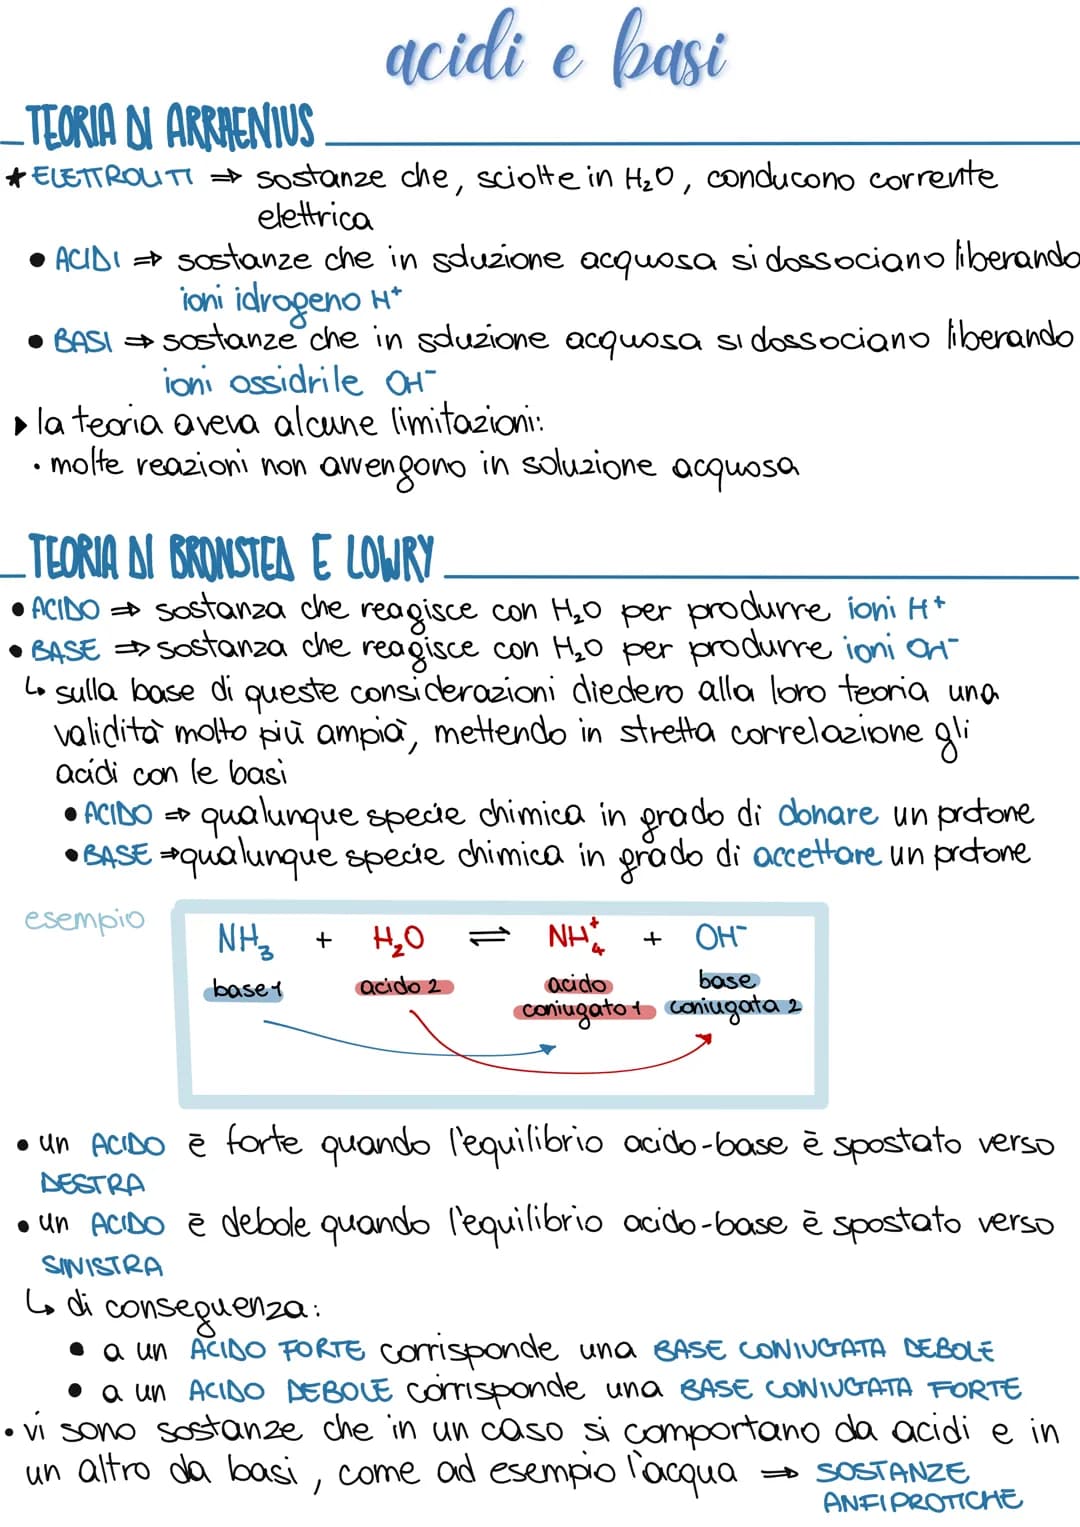 acidi e basi
TEORIA DI ARRHENIUS
★ ELETTROLITI ⇒ sostanze che, sciolte in H₂O, conducono corrente
elettrica
• ACIDI ⇒ sostanze che in soluzione acquosa si dossociano liberando
ioni idrogeno H⁺
• BASI ⇒ sostanze che in soluzione acquosa si dossociano liberando
ioni ossidrile OH⁻
▸ la teoria aveva alcune limitazioni:
· molte reazioni non avvengono in soluzione acquosa
TEORIA DI BRONSTED E LOWRY
• ACIDO ⇒ sostanza che reagisce con H₂O per produrre ioni H⁺
• BASE ⇒ sostanza che reagisce con H₂O per produrre ioni OH⁻
↳ sulla base di queste considerazioni diedero alla loro teoria una
validità molto più ampia, mettendo in stretta correlazione gli
acidi con le basi
• ACIDO ⇒ qualunque specie chimica in grado di donare un protone
• BASE ⇒ qualunque specie chimica in grado di accettare un protone
esempio
NH₃ + H₂O ⇌ NH₄⁺ + OH⁻
base 1 acido 2 acido base
coniugato 1 coniugata 2
• un ACIDO è forte quando l'equilibrio acido-base è spostato verso
DESTRA
• un ACIDO è debole quando l'equilibrio acido-base è spostato verso
SINISTRA
↳ di conseguenza:
• a un ACIDO FORTE corrisponde una BASE CONIUGATA DEBOLE
• a un ACIDO DEBOLE corrisponde una BASE CONIUGATA FORTE
• vi sono sostanze che in un caso si comportano da acidi e in
un altro da basi, come ad esempio l'acqua ⇒ SOSTANZE
ANFIPROTICHE